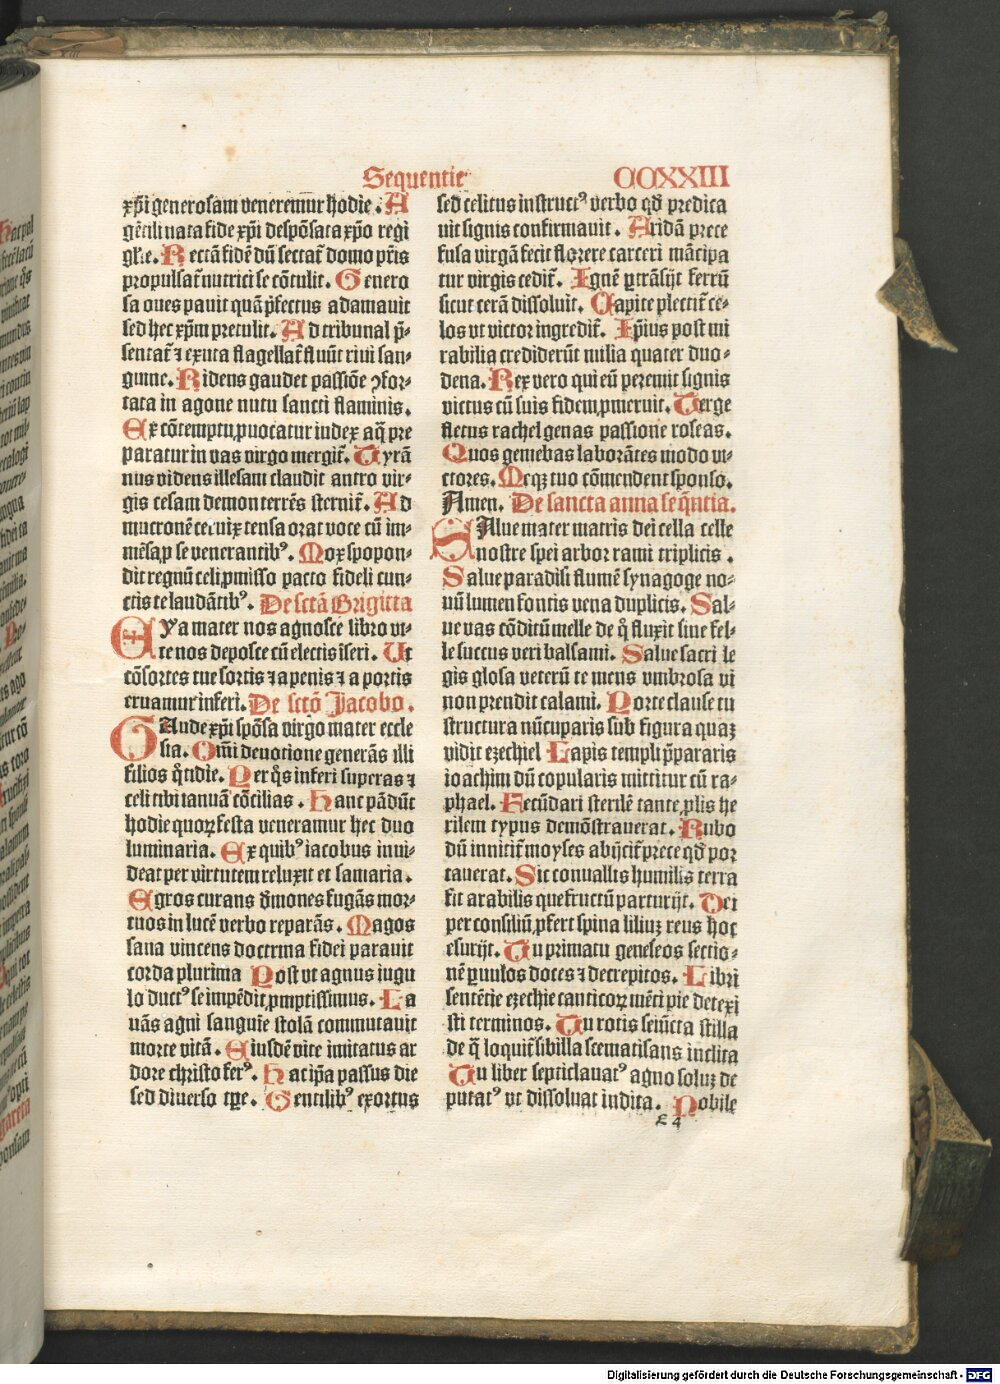 Sequentie CCXXIII
xp̄i generosam veneremur hodie. A
gētili nata fide xp̄i despōsata xp̄o regi
gl̄ie. Rectā fidē dū sectat̄ domo pr̄is
propulsat̄ nutrici se cōtulit. Genero
sa oues pauit quā p̄fectus adamauit
sed hec xp̄m pretulit. Ad tribunal p̄-
sentat̄ ⁊ exuta flagellat̄ fluūt riui san-
guine. Ridens gaudet passiōe ꝯfor-
tata in agone nutu sancti flaminis.
Ex cōtemptu ꝓuocatur iudex aq̄ pre
paratur in vas virgo mergit̄. Tyrā
nus videns illesam claudit antro vir-
gis cesam demon terrēs sternit̄. Ad
mucronē ceruix tensa orat voce cū im-
mēsa ꝓ se venerantibꝰ. Mox spopon-
dit regnū celi ꝓmisso pacto fideli cun-
ctis te laudātibꝰ. De sctā Brigitta
Eya mater nos agnosce libro vi-
te nos deposce cū electis īseri. Ut
cōsortes tue sortis ⁊ a penis ⁊ a portis
eruamur inferi. De sctō Jacobo.
Gaude xp̄i spōsa virgo mater eccle
sia. Om̄i deuotione generās illi
filios q̄tidie. Per q̄s inferi superas ⁊
celi tibi ianuā cōcilias. Hanc pādūt
hodie quoꝝ festa veneramur hec duo
luminaria. Ex quibꝰ iacobus inui-
deat per virtutem reluxit et samaria.
Egros curans d̄mones fugās mor-
tuos in lucē verbo reparās. Magos
sana vincens doctrina fidei parauit
corda plurima Post vt agnus iugu
lo ductꝰ se impēdit ꝓmptissimus. La
uās agni sanguīe stolā commutauit
morte vitā. Eiusdē vite imitatus ar
dore christo ferꝰ. Hac ip̄a passus die
sed diuerso tꝑe. Gentilibꝰ exortus
sed celitus instructꝰ verbo qd̄ predica
uit signis confirmauit. Aridā prece
fusa virgā fecit florere carceri mācipa
tur virgis cedit̄. Ignē ꝑtrāsijt ferrū
sicut cerā dissoluit. Capite plectit̄ ce-
los vt victor ingredit̄. Ip̄ius post mi
rabilia crediderūt milia quater duo-
dena. Rex vero qui eū peremit signis
victus cū suis fidem ꝓmeruit. Terge
fletus rachel genas passione roseas.
Quos gemebas laborātes modo vi-
ctores. Meqꝫ tuo cōmendent sponso.
Amen. De sancta anna seq̄ntia.
Salue mater matris dei cella celle
nostre spei arbor rami triplicis.
Salue paradisi flumē synagoge no-
uū lumen fontis vena duplicis. Sal-
ue vas cōditū melle de q̄ fluxit sine fel-
le succus veri balsami. Salue sacri le
gis glosa veterū te mens vmbrosa vi
non prendit calami. Porte clause tu
structura nūcuparis sub figura quaꝫ
vidit ezechiel Lapis templi p̄pararis
ioachim dū copularis mittitur cū ra-
phael. Fecūdari sterilē tante ꝓlis he
rilem typus demōstrauerat. Rubo
dū innitit̄ moyses abijcit̄ prece qd̄ por
tauerat. Sic conuallis humilis terra
fit arabilis que fructū parturijt. Dei
per consiliū ꝓfert spina liliuꝫ reus hoc
esurijt. Tu primatu geneseos sectio-
nē ꝑuulos doces ⁊ decrepitos. Libri
sentētie ezechie canticoꝝ mēti pie detexi
sti terminos. Tu rotis seiūcta stilla
de q̄ loquit̄ sibilla scematisans inclita
Tu liber septiclauatꝰ agno soluꝫ de
putatꝰ vt dissoluat indita. Nobile
Digitalisierung gefördert durch die Deutsche Forschungsgemeinschaft - DFG